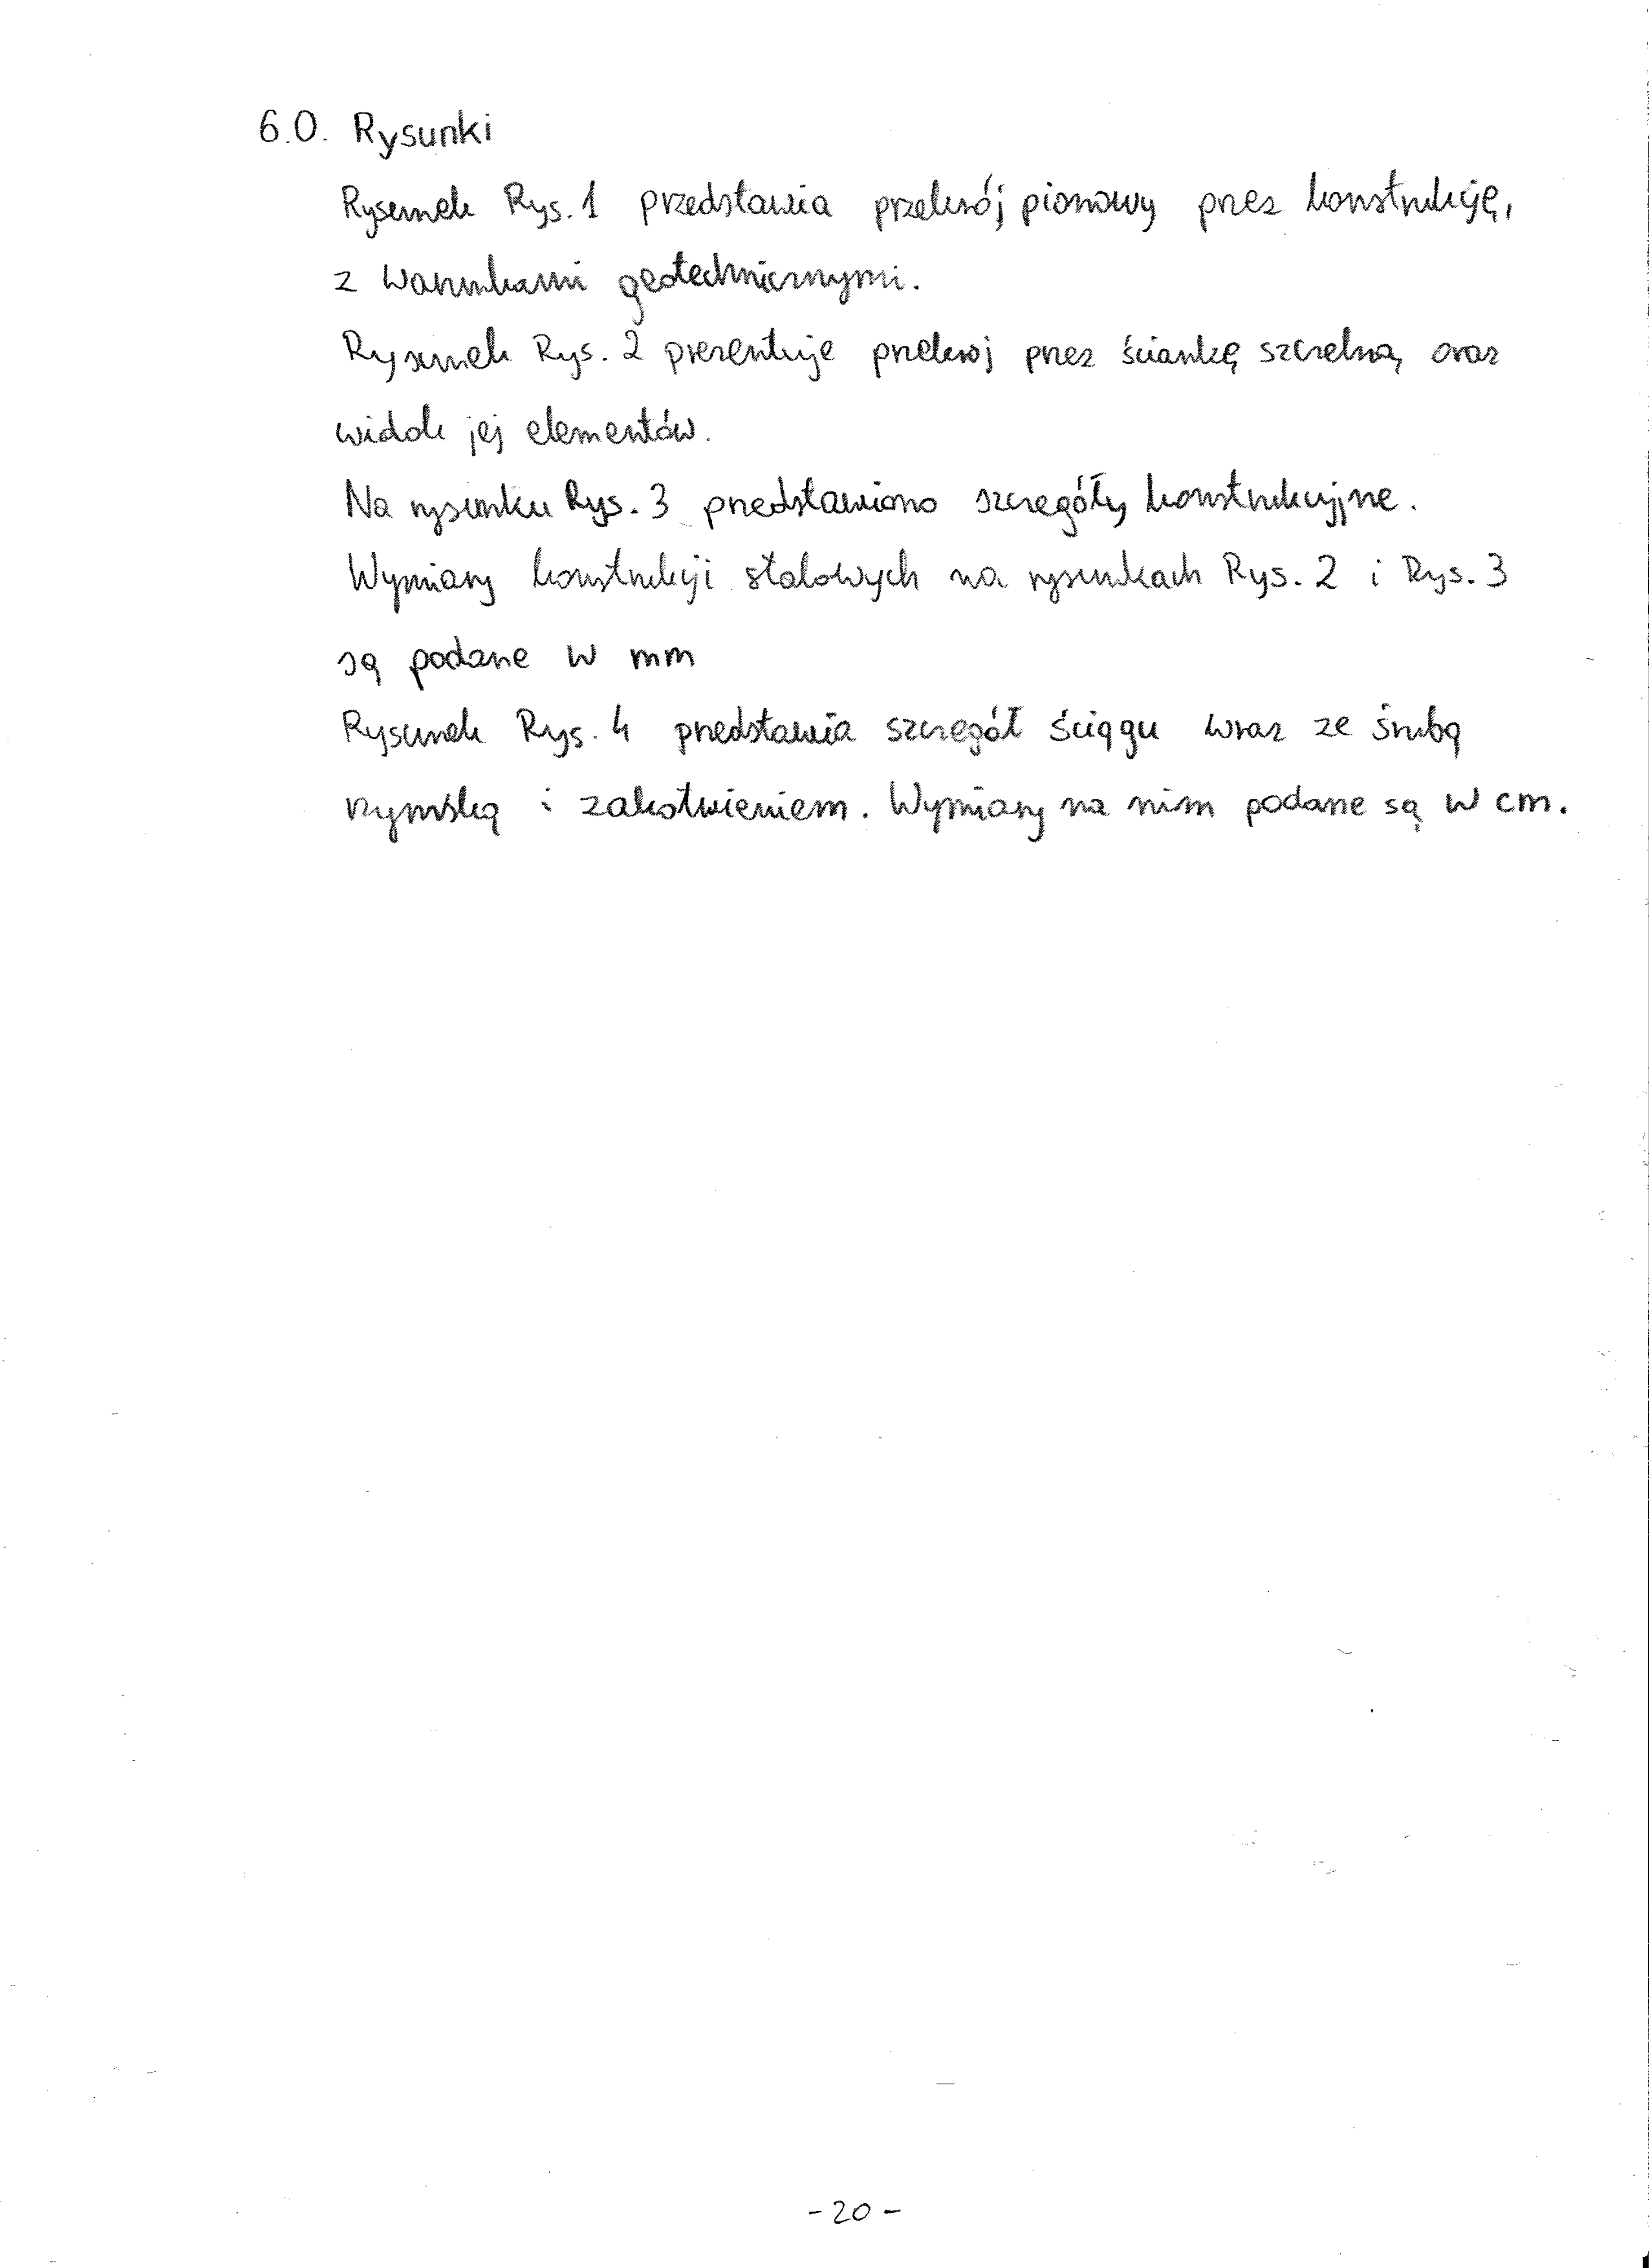 6.0. Rysunki
Rysunek Rys. 1 przedstawia przekrój pionowy przez konstrukcję,
z warunkami geotechnicznymi.
Rysunek Rys. 2 prezentuje przekroj przez ściankę szczelną oraz
widok jej elementów.
Na rysunku Rys. 3 przedstawiono szczegóły konstrukcyjne.
Wymiary konstrukcji stalowych na rysunkach Rys. 2 i Rys. 3
są podane w mm
Rysunek Rys. 4 przedstawia szczegół ściągu wraz ze śrubą
rzymską i zakotwieniem. Wymiary na nim podane są w cm.
- 20 -